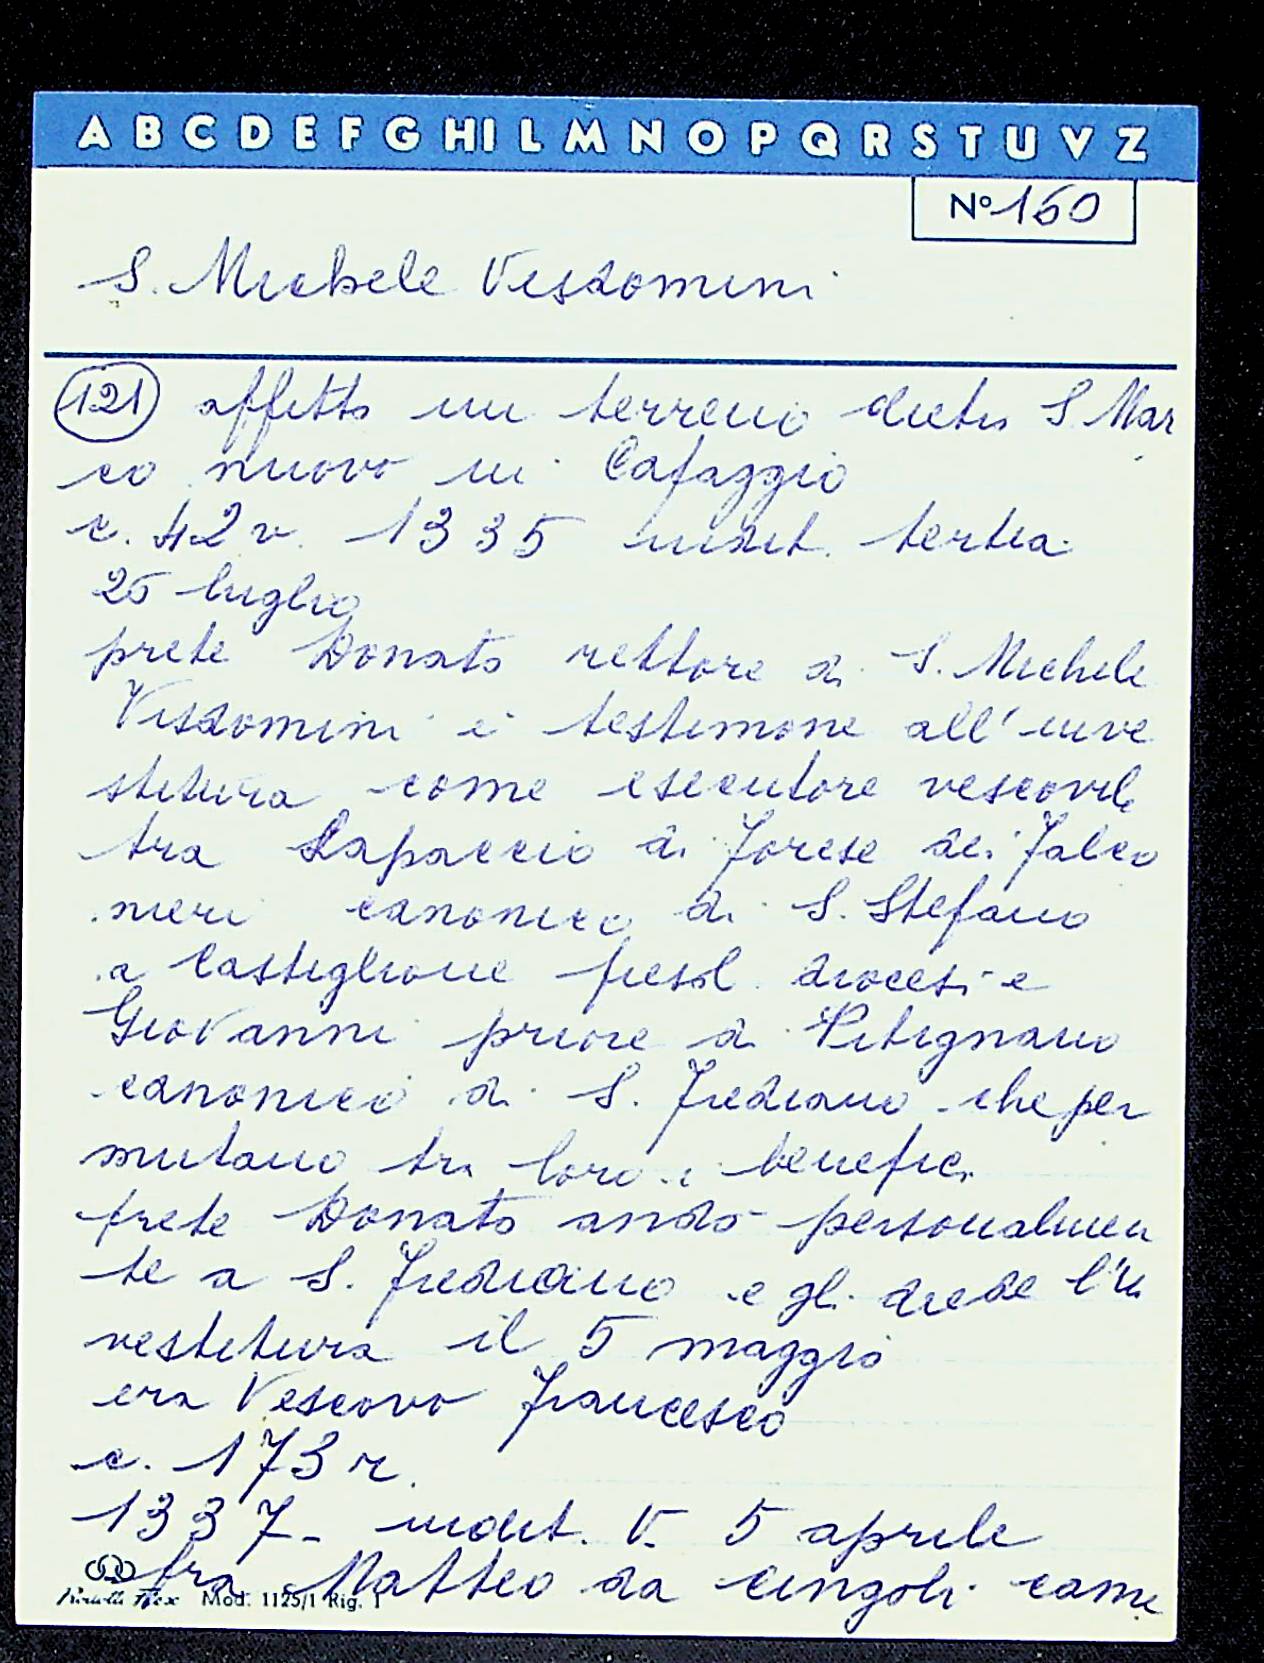 A B C D E F G H I L M N O P Q R S T U V Z
N° 160
S. Michele Visdomini
121 affitto un terreno dietro S Mar
co nuovo in Cafaggio
c. 42 v. 1335 indict. tertia
25 luglio
prete Donato rettore di S. Michele
Visdomini è testimone all'inve
stitura come esecutore vescovile
tra Lapaccio di Forese dei Falco
nieri canonico di S. Stefano
a Castiglione fiesol. diocesi e
Giovanni priore di Pitignano
canonico di S. Frediano che per
mutano tra loro i benefici
prete Donato andò personalmen
te a S. Frediano e gli diede l'in
vestitura il 5 maggio
era Vescovo Francesco
c. 173 r.
1337 - indict. V. 5 aprile
fra Matteo da Cingoli came
Mod. 1125/1 Rig. 1